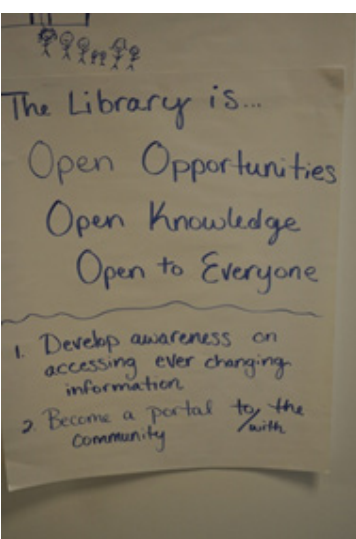 The Library is...
Open Opportunities
Open Knowledge
Open to Everyone
1. Develop awareness on
accessing ever changing
information
2. Become a portal to/with the
community